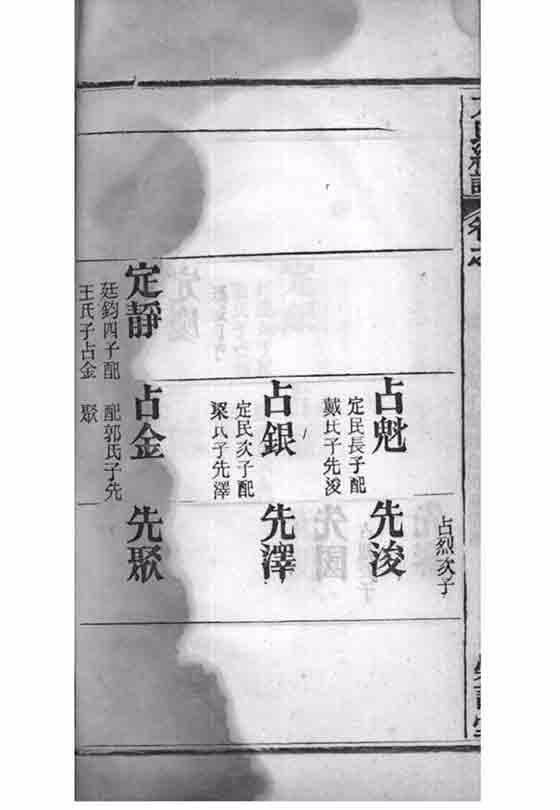 氏
卷之
占烈次子
占魁
定民長子配
戴氏子先浚
先浚
占銀
定民次子配
梁氏子先澤
先澤
定靜
廷鈞四子配
王氏子占金
占金
配郭氏子先
聚
先聚